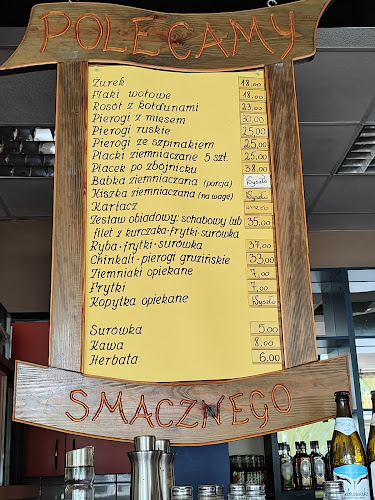 POLECAMY
Żurek 18,00
Flaki wołowe 18,00
Rosół z kołdunami 23,00
Pierogi z mięsem 30,00
Pierogi ruskie 25,00
Pierogi ze szpinakiem 25,00
Placki ziemniaczane 5 szt. 25,00
Placek po zbójnicku 38,00
Babka ziemniaczana (porcja) Wyszło
Kiszka ziemniaczana (na wagę) Wyszło
Kartacz
Zestaw obiadowy: schabowy lub 35,00
filet z kurczaka-frytki-surówka
Ryba-frytki-surówka 37,00
Chinkali-pierogi gruzińskie 33,00
Ziemniaki opiekane 7,00
Frytki 7,00
Kopytka opiekane Wyszło
Surówka 5,00
Kawa 8,00
Herbata 6,00
SMACZNEGO